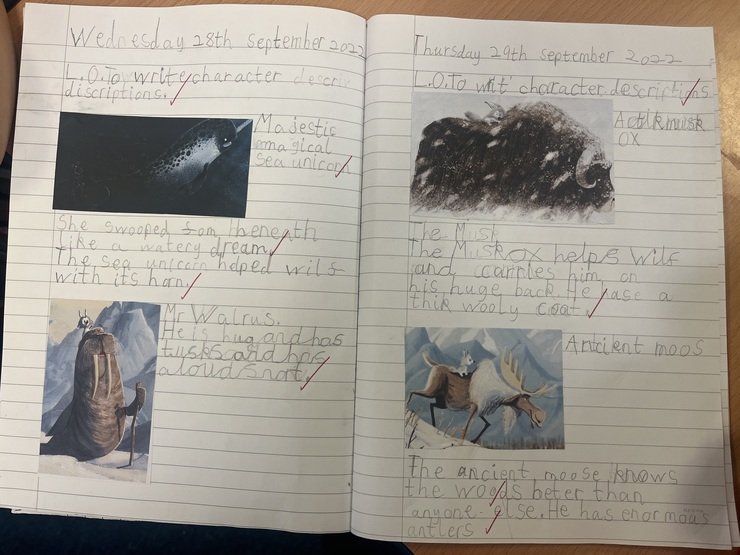 Wednesday 28th september 2022
L.O.To write character descri
discriptions.
Majestic
magical
sea unicorn
She swooped from beneath
like a watery dream.
The sea unicorn helped wilf
with its horn.
Mr Walrus.
He is hug and has
tusks and has
a loud snort.
Thursday 29th september 2022
L.O.To writ' character descriptions
musk
OX
The Musk
The Musk ox helps Wilf
and carries him on
his huge back. He hase a
thik wooly coat.
Antcient moos
The ancient moose knows
the woods beter than
anyone else. He has enormous
antlers